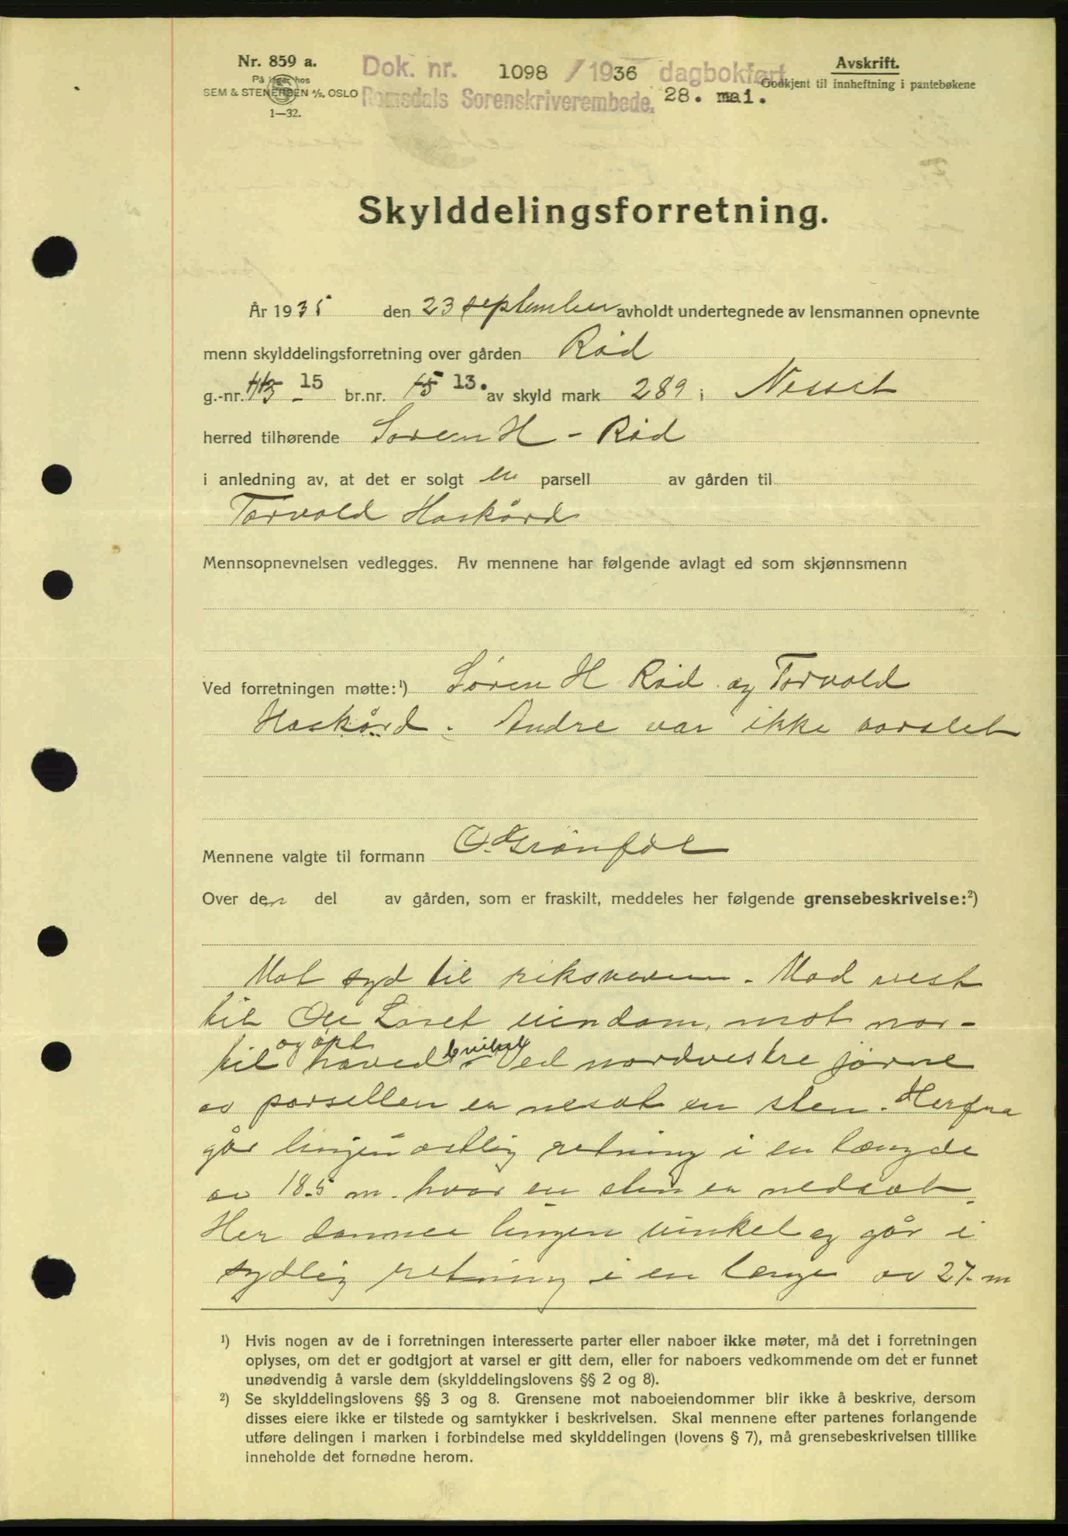 Nr. 859 a.
På lager hos
SEM & STENERSEN A/S, OSLO
1—32.
Dok. nr. 1098 / 1936 dagbokført
Romsdals Sorenskriverembede. 28. mai.
Avskrift.
Godkjent til innheftning i pantebøkene
Skylddelingsforretning.
År 1935 den 23 september avholdt undertegnede av lensmannen opnevnte
menn skylddelingsforretning over gården Rød
g.-nr. 15 br.nr. 13. av skyld mark 289 i Nesset
herred tilhørende Søren H - Rød
i anledning av, at det er solgt en parsell av gården til
Torvald Haskård
Mennsopnevnelsen vedlegges. Av mennene har følgende avlagt ed som skjønnsmenn
Ved forretningen møtte:¹) Søren H Rød og Torvald
Haskård. Andre var ikke varslet
Mennene valgte til formann
Over den del av gården, som er fraskilt, meddeles her følgende grensebeskrivelse:²)
Mot syd til riksveien. Mod vest
til Ole eiendom, mot nor-
til haved. Ved nordvestre jørne
av parsellen er nesat en sten. Herfra
går linjen østlig retning i en længde
av 18.5 m. hvor en sten er nedsat.
Her danner linjen vinkel og går i
sydlig retning i en lenge av 27 m
¹) Hvis nogen av de i forretningen interesserte parter eller naboer ikke møter, må det i forretningen
oplyses, om det er godtgjort at varsel er gitt dem, eller for naboers vedkommende om det er funnet
unødvendig å varsle dem (skylddelingslovens §§ 2 og 8).
²) Se skylddelingslovens §§ 3 og 8. Grensene mot naboeiendommer blir ikke å beskrive, dersom
disses eiere ikke er tilstede og samtykker i beskrivelsen. Skal mennene efter partenes forlangende
utføre delingen i marken i forbindelse med skylddelingen (lovens § 7), må grensebeskrivelsen tillike
inneholde det fornødne herom.